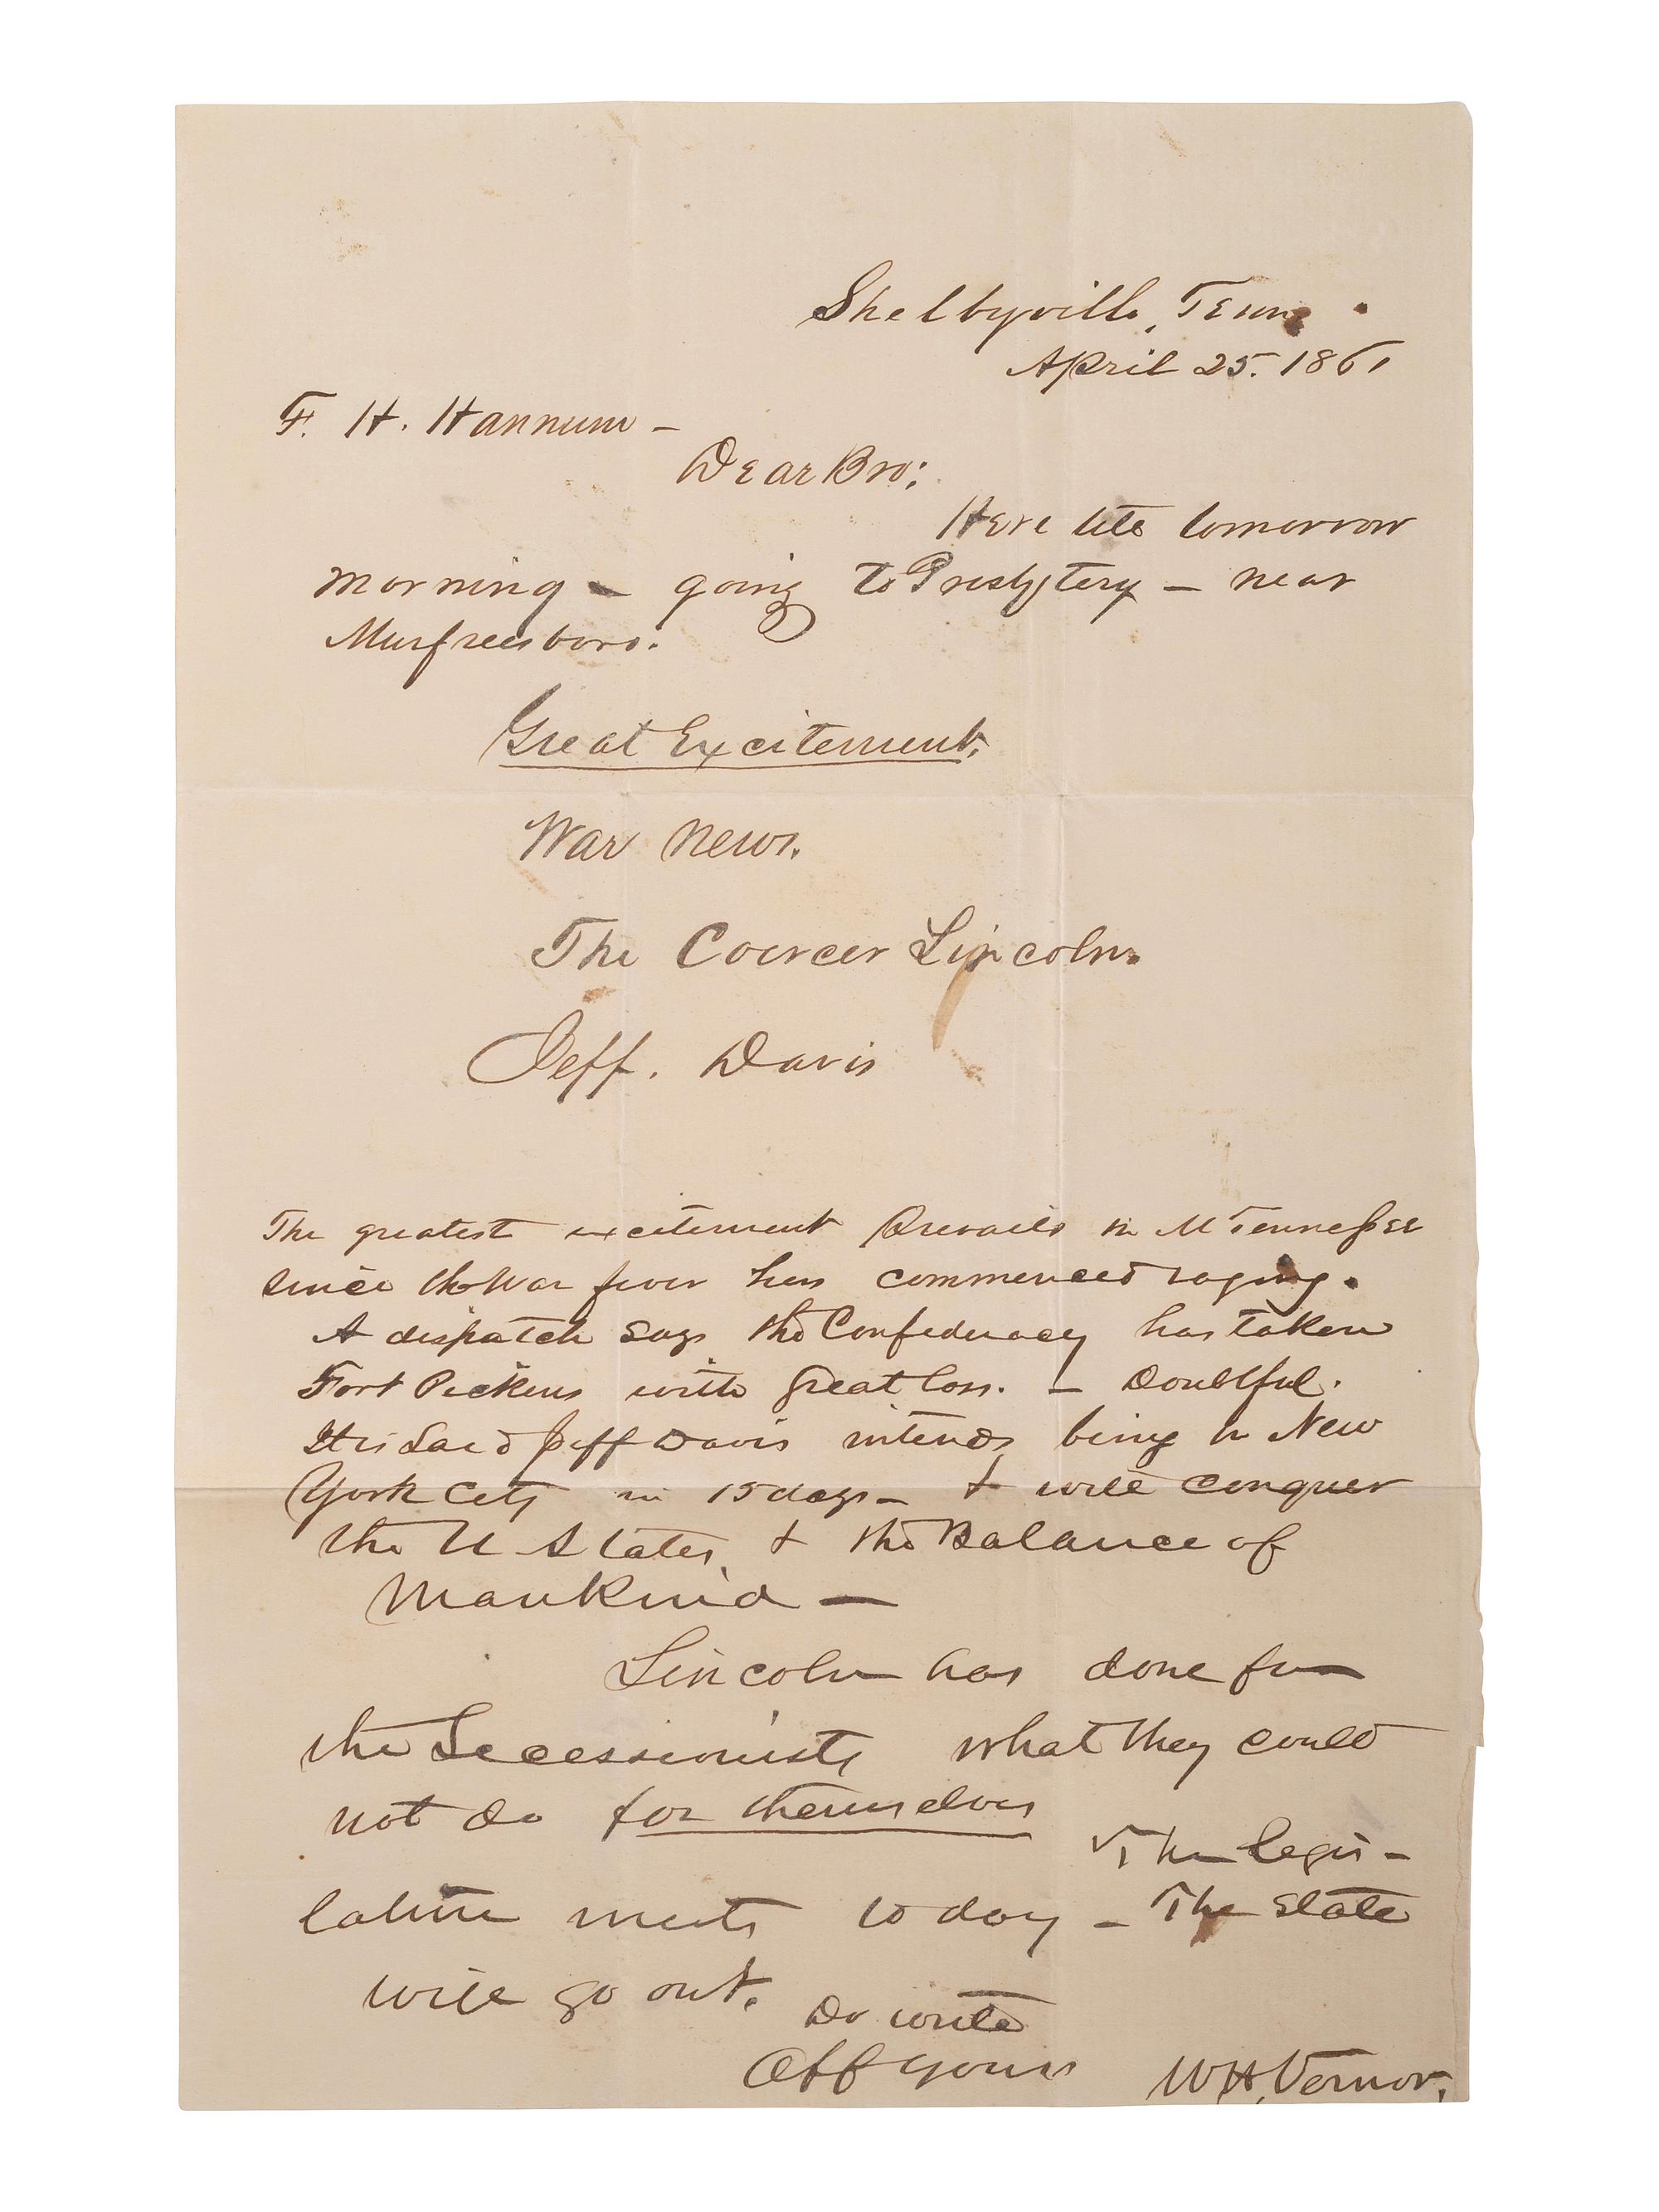 Shelbyville, Tenn.
April 25. 1861
F. H. Hannum —
Dear Bro:
Here till tomorrow
morning — going to Presbytery — near
Murfreesboro.
Great Excitement.
War News.
The Coercer Lincoln.
Jeff. Davis
The greatest excitement Prevails in M Tennessee
since the War fever has commenced raging.
A dispatch says the Confederacy has taken
Fort Pickens with great loss. — Doubtful.
It is said Jeff Davis intends being in New
York City in 15 days — & will conquer
the U States, & the Balance of
Mankind —
Lincoln has done for
the Secessionists what they could
not do for themselves
The legis-
lature meets to day — The State
will go out. Do write
Aff yours W H, Vernor.